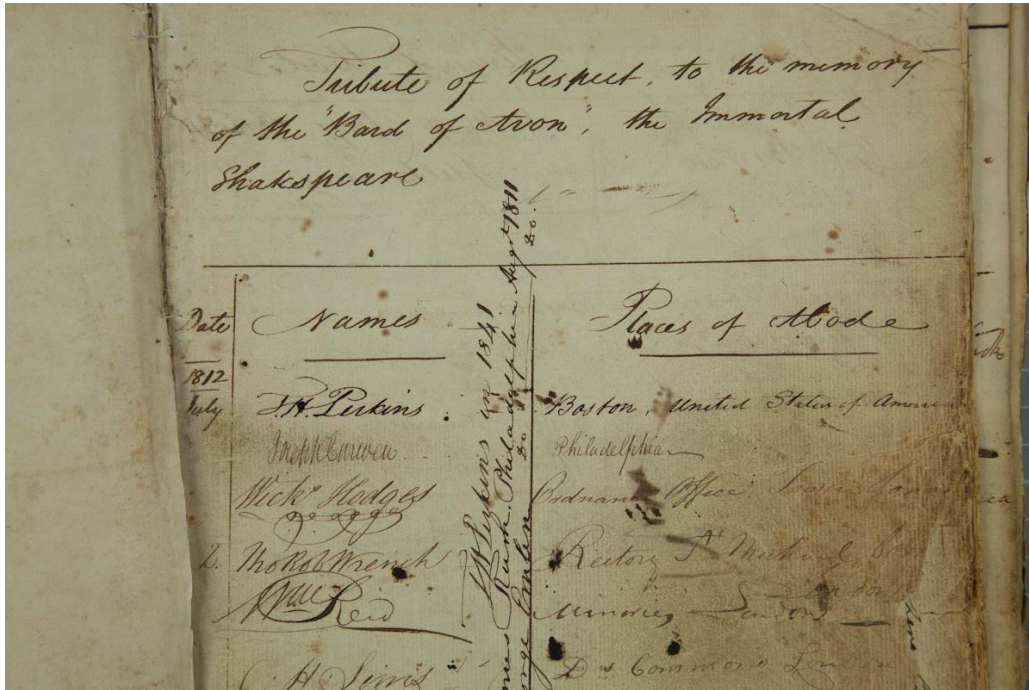 Tribute of Respect, to the memory
of the "Bard of Avon", the Immortal
Shakspeare
Date Names Places of Abode
1812
July F.H. Perkins Boston, United States of America
Joseph Curwen Philadelphia
Hodges Ordnance Office
D. Thos Robt Wrench Rectory St Michael
London
Wm Reid Minories London
H Sims Drs Commons London
Perkins in 1841
Rush Philadelphia Augst 1811
Do. Do.